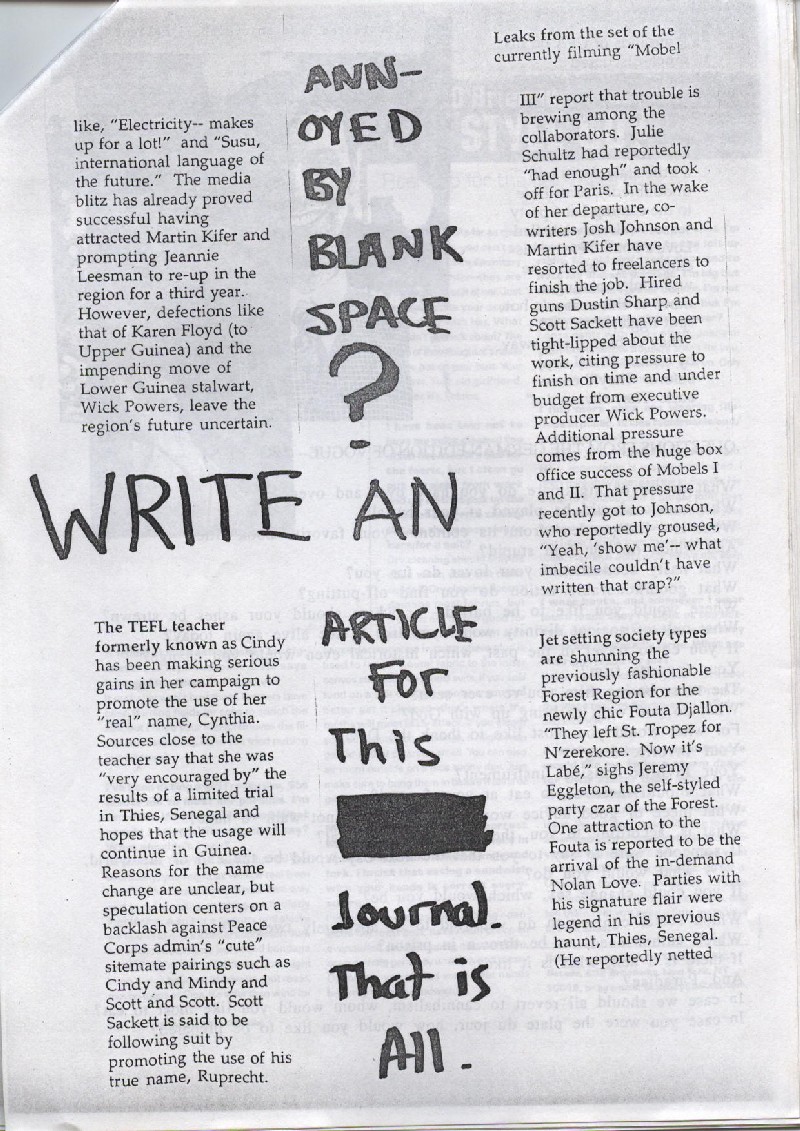 like, "Electricity-- makes
up for a lot!" and "Susu,
international language of
the future." The media
blitz has already proved
successful having
attracted Martin Kifer and
prompting Jeannie
Leesman to re-up in the
region for a third year.
However, defections like
that of Karen Floyd (to
Upper Guinea) and the
impending move of
Lower Guinea stalwart,
Wick Powers, leave the
region's future uncertain.
The TEFL teacher
formerly known as Cindy
has been making serious
gains in her campaign to
promote the use of her
"real" name, Cynthia.
Sources close to the
teacher say that she was
"very encouraged by" the
results of a limited trial
in Thies, Senegal and
hopes that the usage will
continue in Guinea.
Reasons for the name
change are unclear, but
speculation centers on a
backlash against Peace
Corps admin's "cute"
sitemate pairings such as
Cindy and Mindy and
Scott and Scott. Scott
Sackett is said to be
following suit by
promoting the use of his
true name, Ruprecht.
ANN-
OYED
BY
BLANK
SPACE
?
WRITE AN
ARTICLE
FOr
This
Journal.
That is
All.
Leaks from the set of the
currently filming "Mobel
III" report that trouble is
brewing among the
collaborators. Julie
Schultz had reportedly
"had enough" and took
off for Paris. In the wake
of her departure, co-
writers Josh Johnson and
Martin Kifer have
resorted to freelancers to
finish the job. Hired
guns Dustin Sharp and
Scott Sackett have been
tight-lipped about the
work, citing pressure to
finish on time and under
budget from executive
producer Wick Powers.
Additional pressure
comes from the huge box
office success of Mobels I
and II. That pressure
recently got to Johnson,
who reportedly groused,
"Yeah, 'show me'-- what
imbecile couldn't have
written that crap?"
Jet setting society types
are shunning the
previously fashionable
Forest Region for the
newly chic Fouta Djallon.
"They left St. Tropez for
N'zerekore. Now it's
Labé," sighs Jeremy
Eggleton, the self-styled
party czar of the Forest.
One attraction to the
Fouta is reported to be the
arrival of the in-demand
Nolan Love. Parties with
his signature flair were
legend in his previous
haunt, Thies, Senegal.
(He reportedly netted